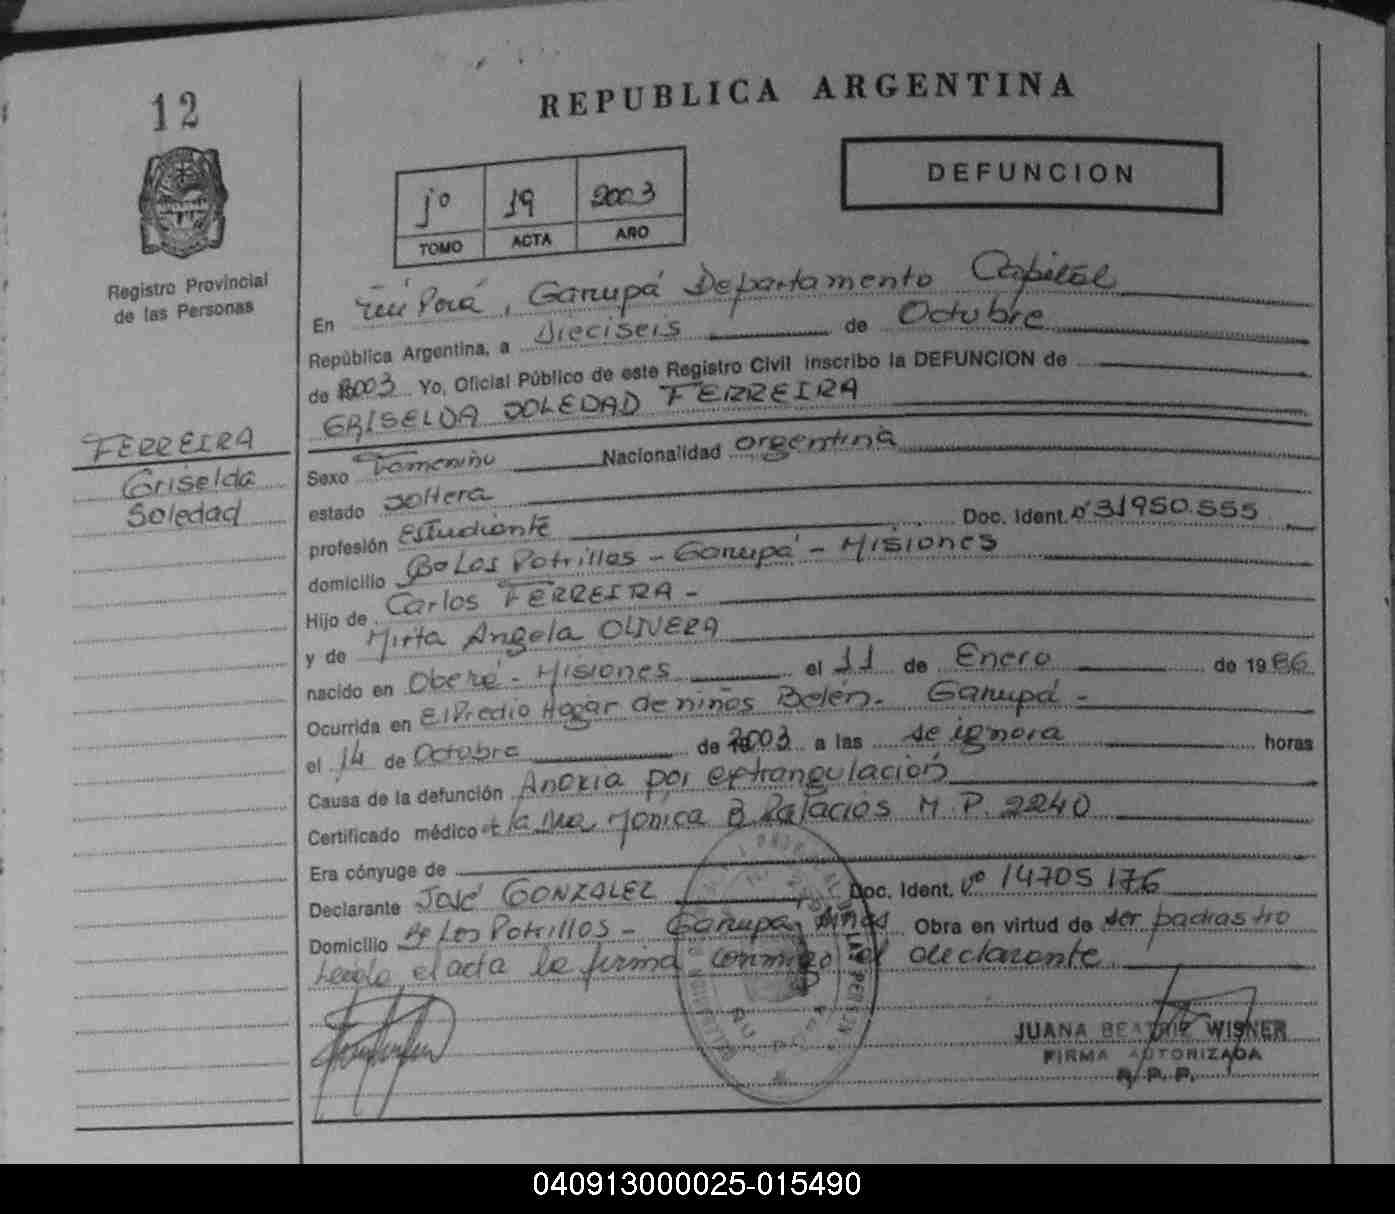 12
REPUBLICA ARGENTINA
DEFUNCION
1º 19 2003
TOMO ACTA AÑO
Registro Provincial
de las Personas
En Itá Porá, Garupá Departamento Capital
República Argentina, a Dieciseis de Octubre
de 2003 Yo, Oficial Público de este Registro Civil inscribo la DEFUNCION de
GRISELDA SOLEDAD FERREIRA
FERREIRA
Griselda
Soledad
Sexo Femenino Nacionalidad argentina
estado soltera
profesión Estudiante Doc. Ident. Nº 31950.555
domicilio Bo Los Potrillos - Garupá - Misiones
Hijo de Carlos FERREIRA -
y de Mirta Angela OLIVERA
nacido en Oberá - Misiones el 11 de Enero de 1986
Ocurrida en El Predio Hogar de niños Belén - Garupá -
el 14 de Octubre de 2003 a las se ignora horas
Causa de la defunción Anoxia por extrangulación
Certificado médico Mónica B. Palacios M.P. 2240
Era cónyuge de
Declarante José GONZALEZ Doc. Ident. Nº 14705176
Domicilio Bo Los Potrillos - Garupá, Mnes Obra en virtud de ser padrastro
Leida el acta la firma conmigo el declarante
JUANA BEATRIZ WISNER
FIRMA AUTORIZADA
R. P. P.
040913000025-015490